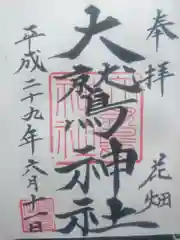 奉拝
花畑
大鷲神社
平成二十九年六月十一日